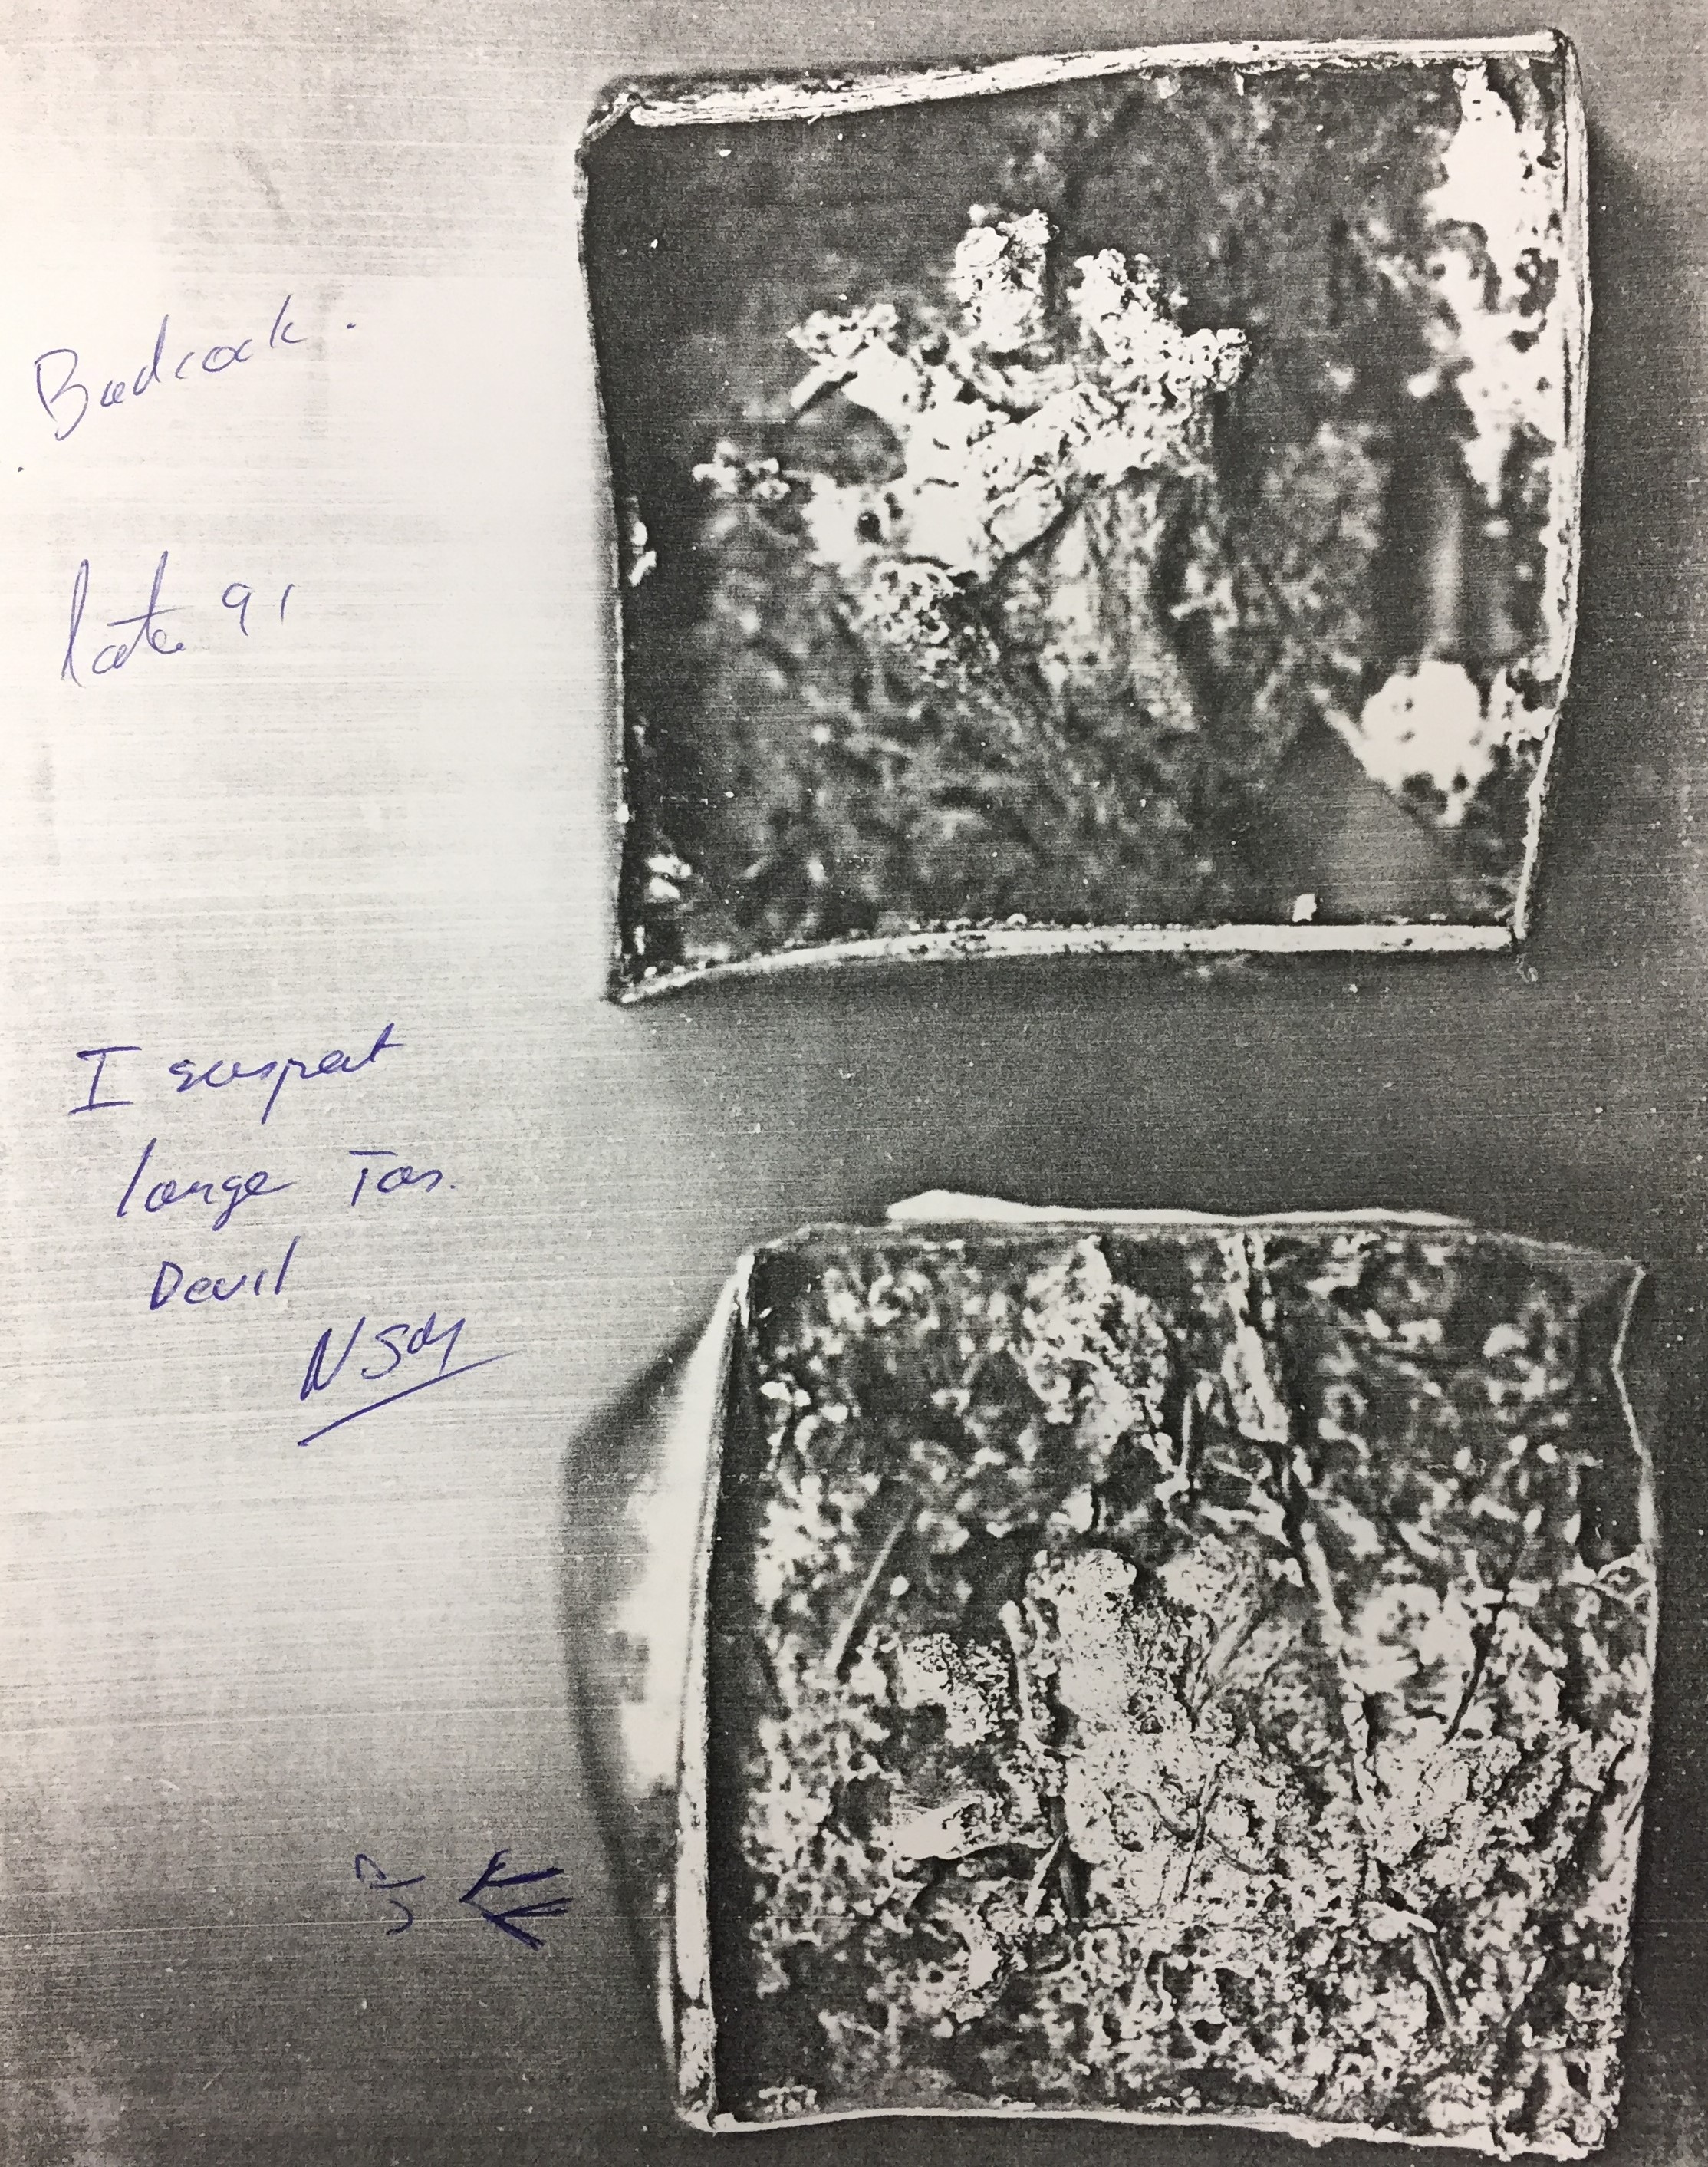 Badcock.
late 91
I suspect
large Tas.
Devil